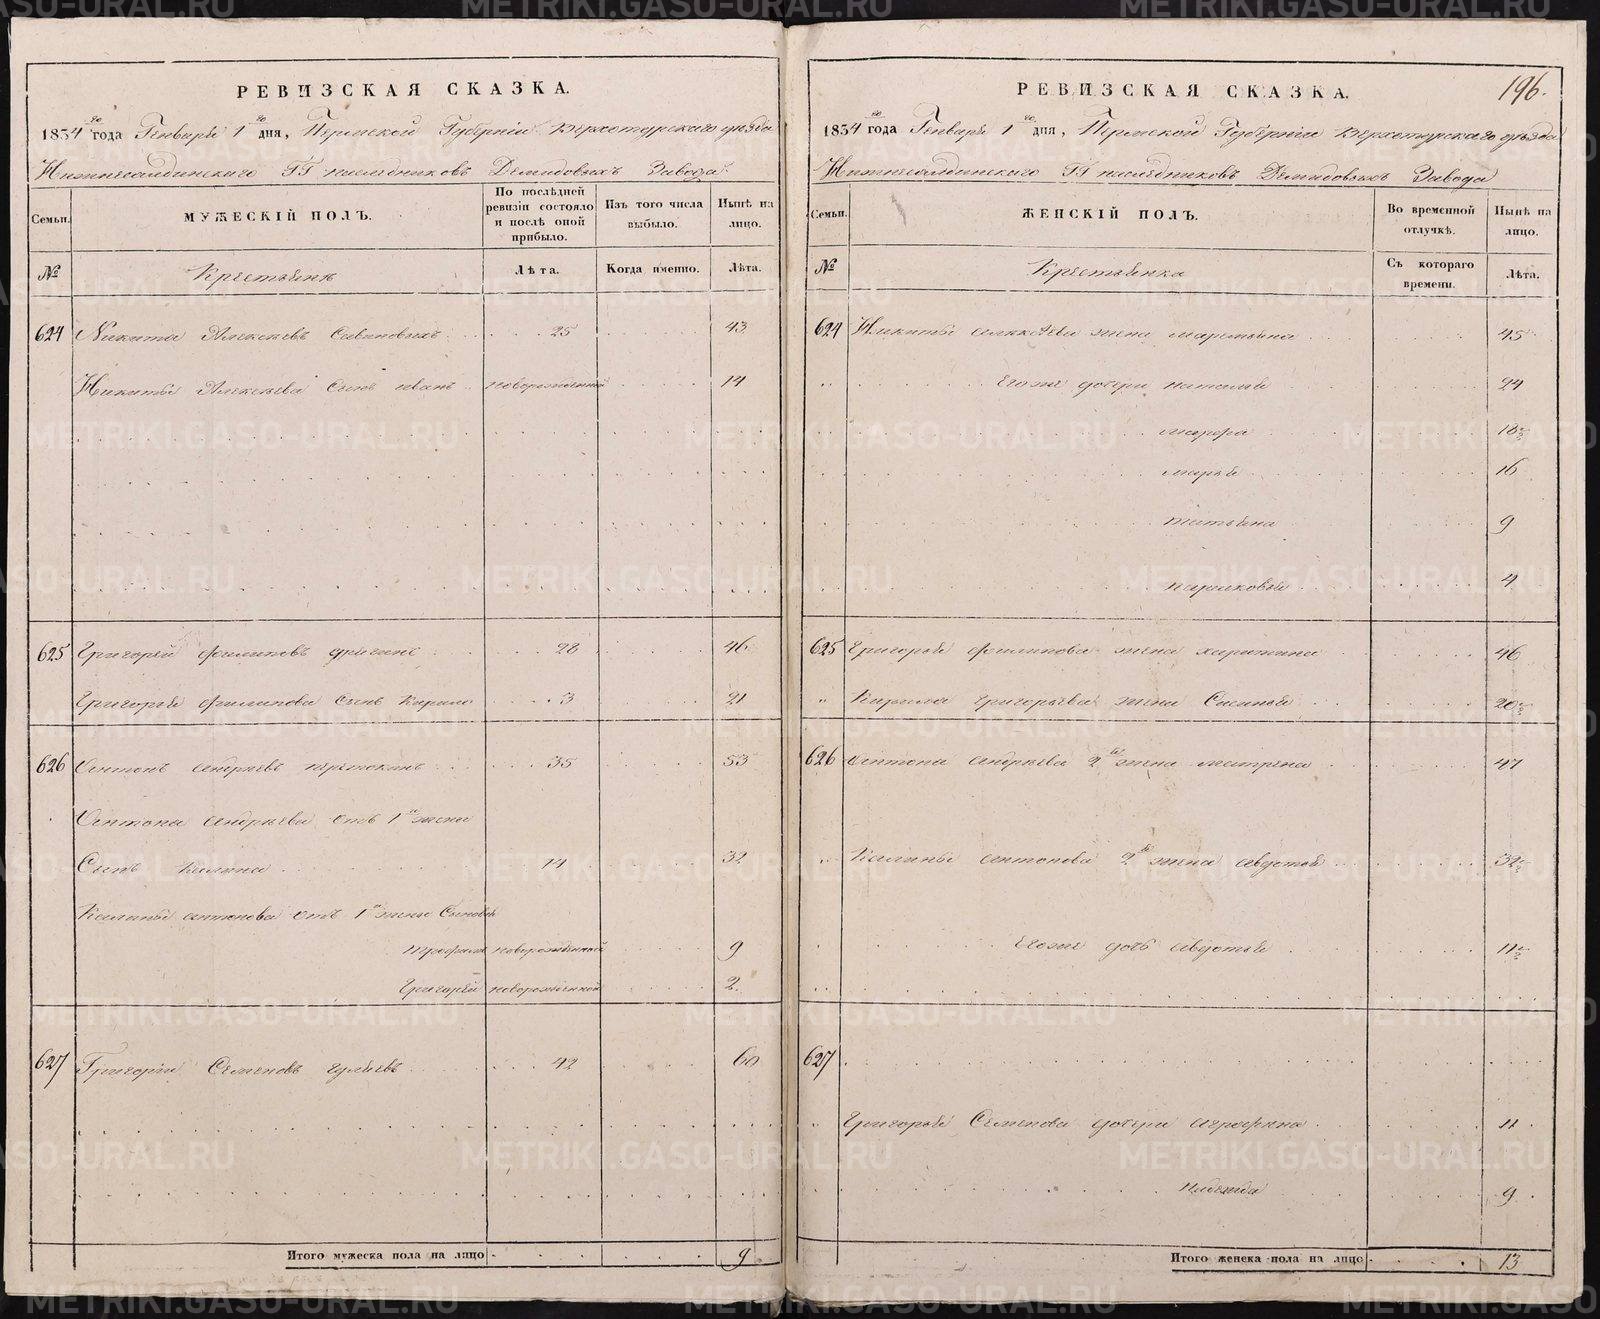 РЕВИЗСКАЯ СКАЗКА.
1834го года Генваря 1го дня, Пермской Губерніи Верхотурскаго уѣзда
Нижнесалдинскаго ГГ наслѣдниковъ Демидовыхъ Завода
Семьи. МУЖЕСКІЙ ПОЛЪ. По послѣдней ревизіи состояло и послѣ оной прибыло. Изъ того числа выбыло. Нынѣ на лицо.
№ Крестьяне Лѣта. Когда именно. Лѣта.
624 Никита Алексѣевъ Савиновыхъ 25 43
Никиты Алексѣева Сынъ иванъ новорожденной 14
625 Григорей филиповъ 28 46
Григорья филипова Сынъ Кирило 3 21
626 Антонъ андрѣевъ 35 53
Антона андрѣева отъ 1й жены
Сынъ Калина 14 32
Калины антонова отъ 1й жены Сыновья
трофимъ новорожденной 9
Григорей новорожденной 2.
627 Григорій Семеновъ гуляевъ 42 60
Итого мужеска пола на лицо 9
196.
РЕВИЗСКАЯ СКАЗКА.
1834го года Генваря 1го дня, Пермской Губерніи Верхотурскаго уѣзда
Нижнесалдинскаго ГГ наслѣдниковъ Демидовыхъ Завода
Семьи. ЖЕНСКІЙ ПОЛЪ. Во временной отлучкѣ. Нынѣ на лицо.
№ Крестьянка Съ котораго времени. Лѣта.
624 Никиты алексѣева жена маремьяна 45
" Егоже дочери наталья 24
марфа 18½
марья 16
татьяна 9
парасковья 4
625 Григорья филипова жена харитина 46
" Кирила григорьева жена 20½
626 Антона андрѣева 2я жена матрена 47
" Калины антонова 2я жена авдотья 32½
Егоже дочь авдотья 11½
627
" Григорья Семенова дочери аграфена 11
надежда 9
Итого женска пола на лицо 13
METRIKI.GASO-URAL.RU